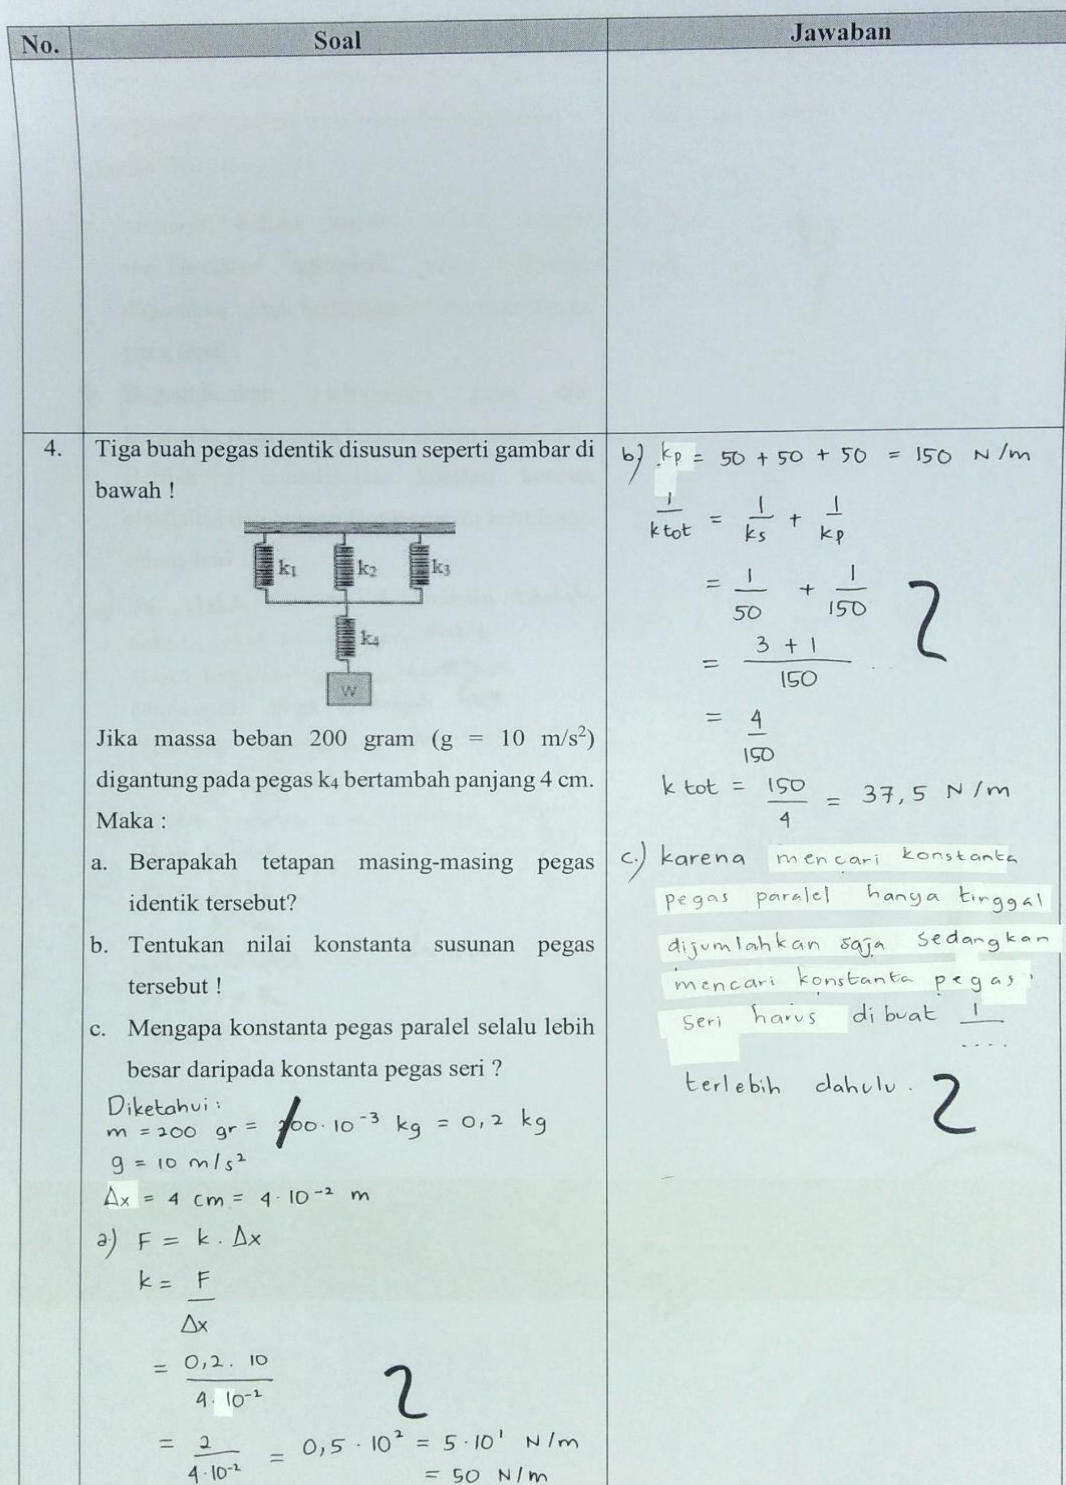 No. Soal Jawaban
4. Tiga buah pegas identik disusun seperti gambar di
bawah !
k1 k2 k3
k4
W
Jika massa beban 200 gram (g = 10 m/s²)
digantung pada pegas k4 bertambah panjang 4 cm.
Maka :
a. Berapakah tetapan masing-masing pegas
identik tersebut?
b. Tentukan nilai konstanta susunan pegas
tersebut !
c. Mengapa konstanta pegas paralel selalu lebih
besar daripada konstanta pegas seri ?
Diketahui :
m = 200 gr = 200 · 10⁻³ kg = 0,2 kg
g = 10 m/s²
Δx = 4 cm = 4 · 10⁻² m
a.) F = k . Δx
k = F / Δx
= 0,2 . 10 / 4 . 10⁻²
2
= 2 / 4 · 10⁻² = 0,5 · 10² = 5 · 10¹ N/m
= 50 N/m
b) kp = 50 + 50 + 50 = 150 N/m
1 / k tot = 1 / ks + 1 / kp
= 1 / 50 + 1 / 150
2
= 3 + 1 / 150
= 4 / 150
k tot = 150 / 4 = 37,5 N/m
c.) karena mencari konstanta
pegas paralel hanya tinggal
dijumlahkan saja sedangkan
mencari konstanta pegas
seri harus dibuat 1 / ....
terlebih dahulu .
2